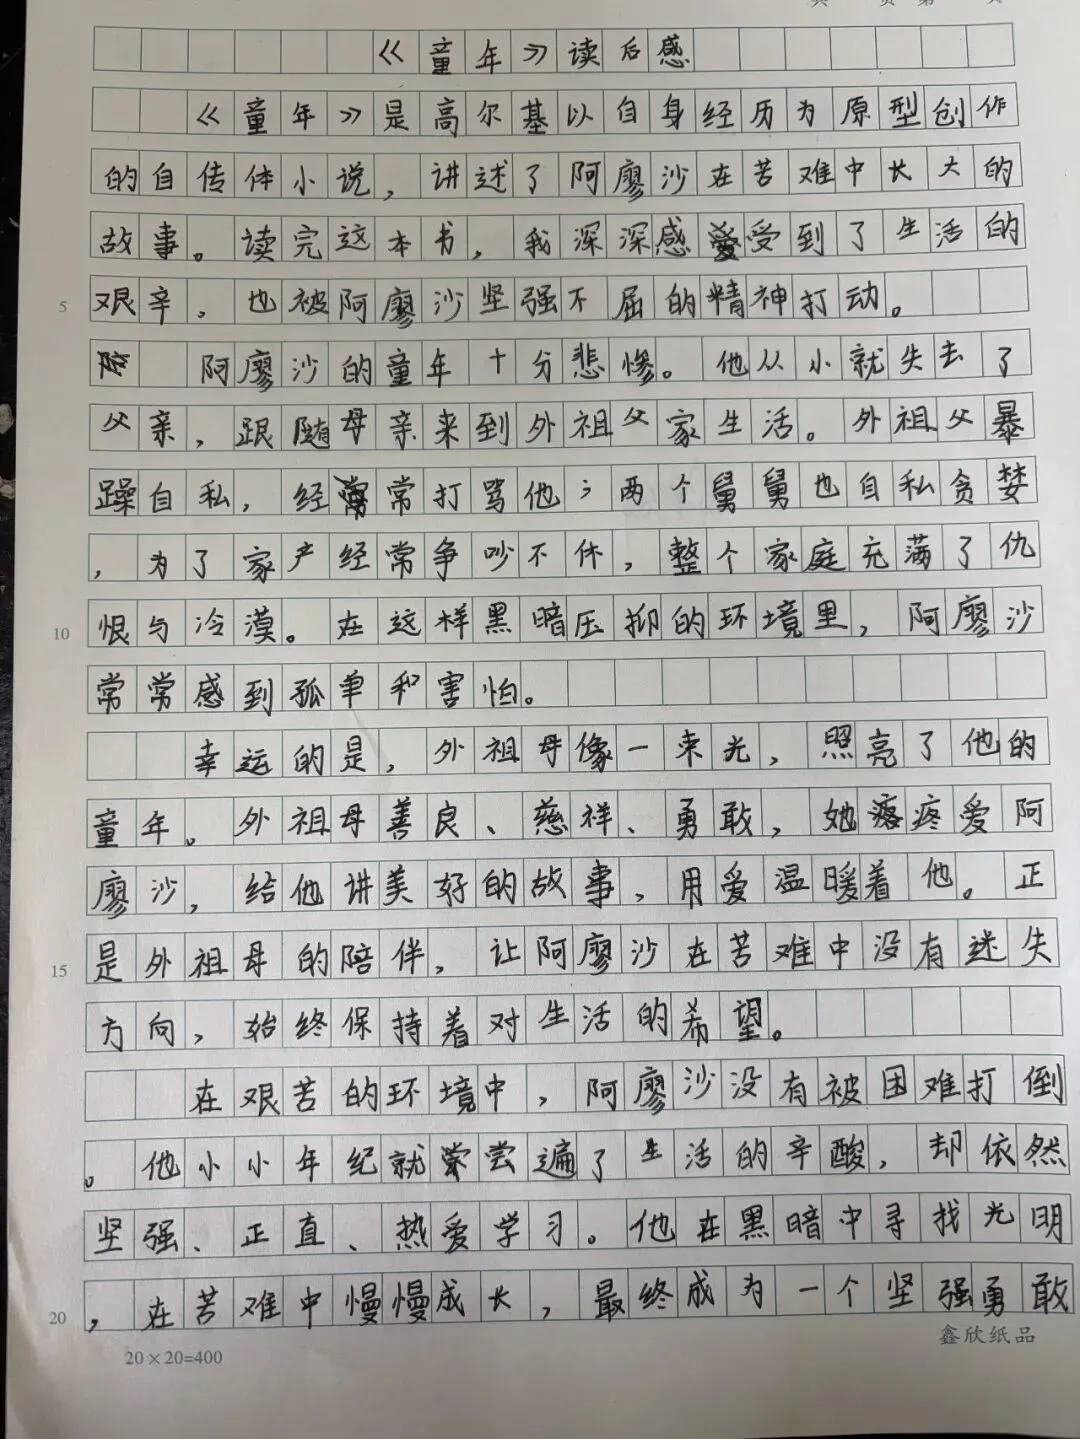 《童年》读后感
《童年》是高尔基以自身经历为原型创作
的自传体小说，讲述了阿廖沙在苦难中长大的
故事。读完这本书，我深深感受到了生活的
5 艰辛，也被阿廖沙坚强不屈的精神打动。
阿廖沙的童年十分悲惨。他从小就失去了
父亲，跟随母亲来到外祖父家生活。外祖父暴
躁自私，经常打骂他；两个舅舅也自私贪婪
，为了家产经常争吵不休，整个家庭充满了仇
10 恨与冷漠。在这样黑暗压抑的环境里，阿廖沙
常常感到孤单和害怕。
幸运的是，外祖母像一束光，照亮了他的
童年。外祖母善良、慈祥、勇敢，她疼爱阿
廖沙，给他讲美好的故事，用爱温暖着他。正
15 是外祖母的陪伴，让阿廖沙在苦难中没有迷失
方向，始终保持着对生活的希望。
在艰苦的环境中，阿廖沙没有被困难打倒
。他小小年纪就尝遍了生活的辛酸，却依然
坚强、正直、热爱学习。他在黑暗中寻找光明
20 ，在苦难中慢慢成长，最终成为一个坚强勇敢
鑫欣纸品
20×20=400